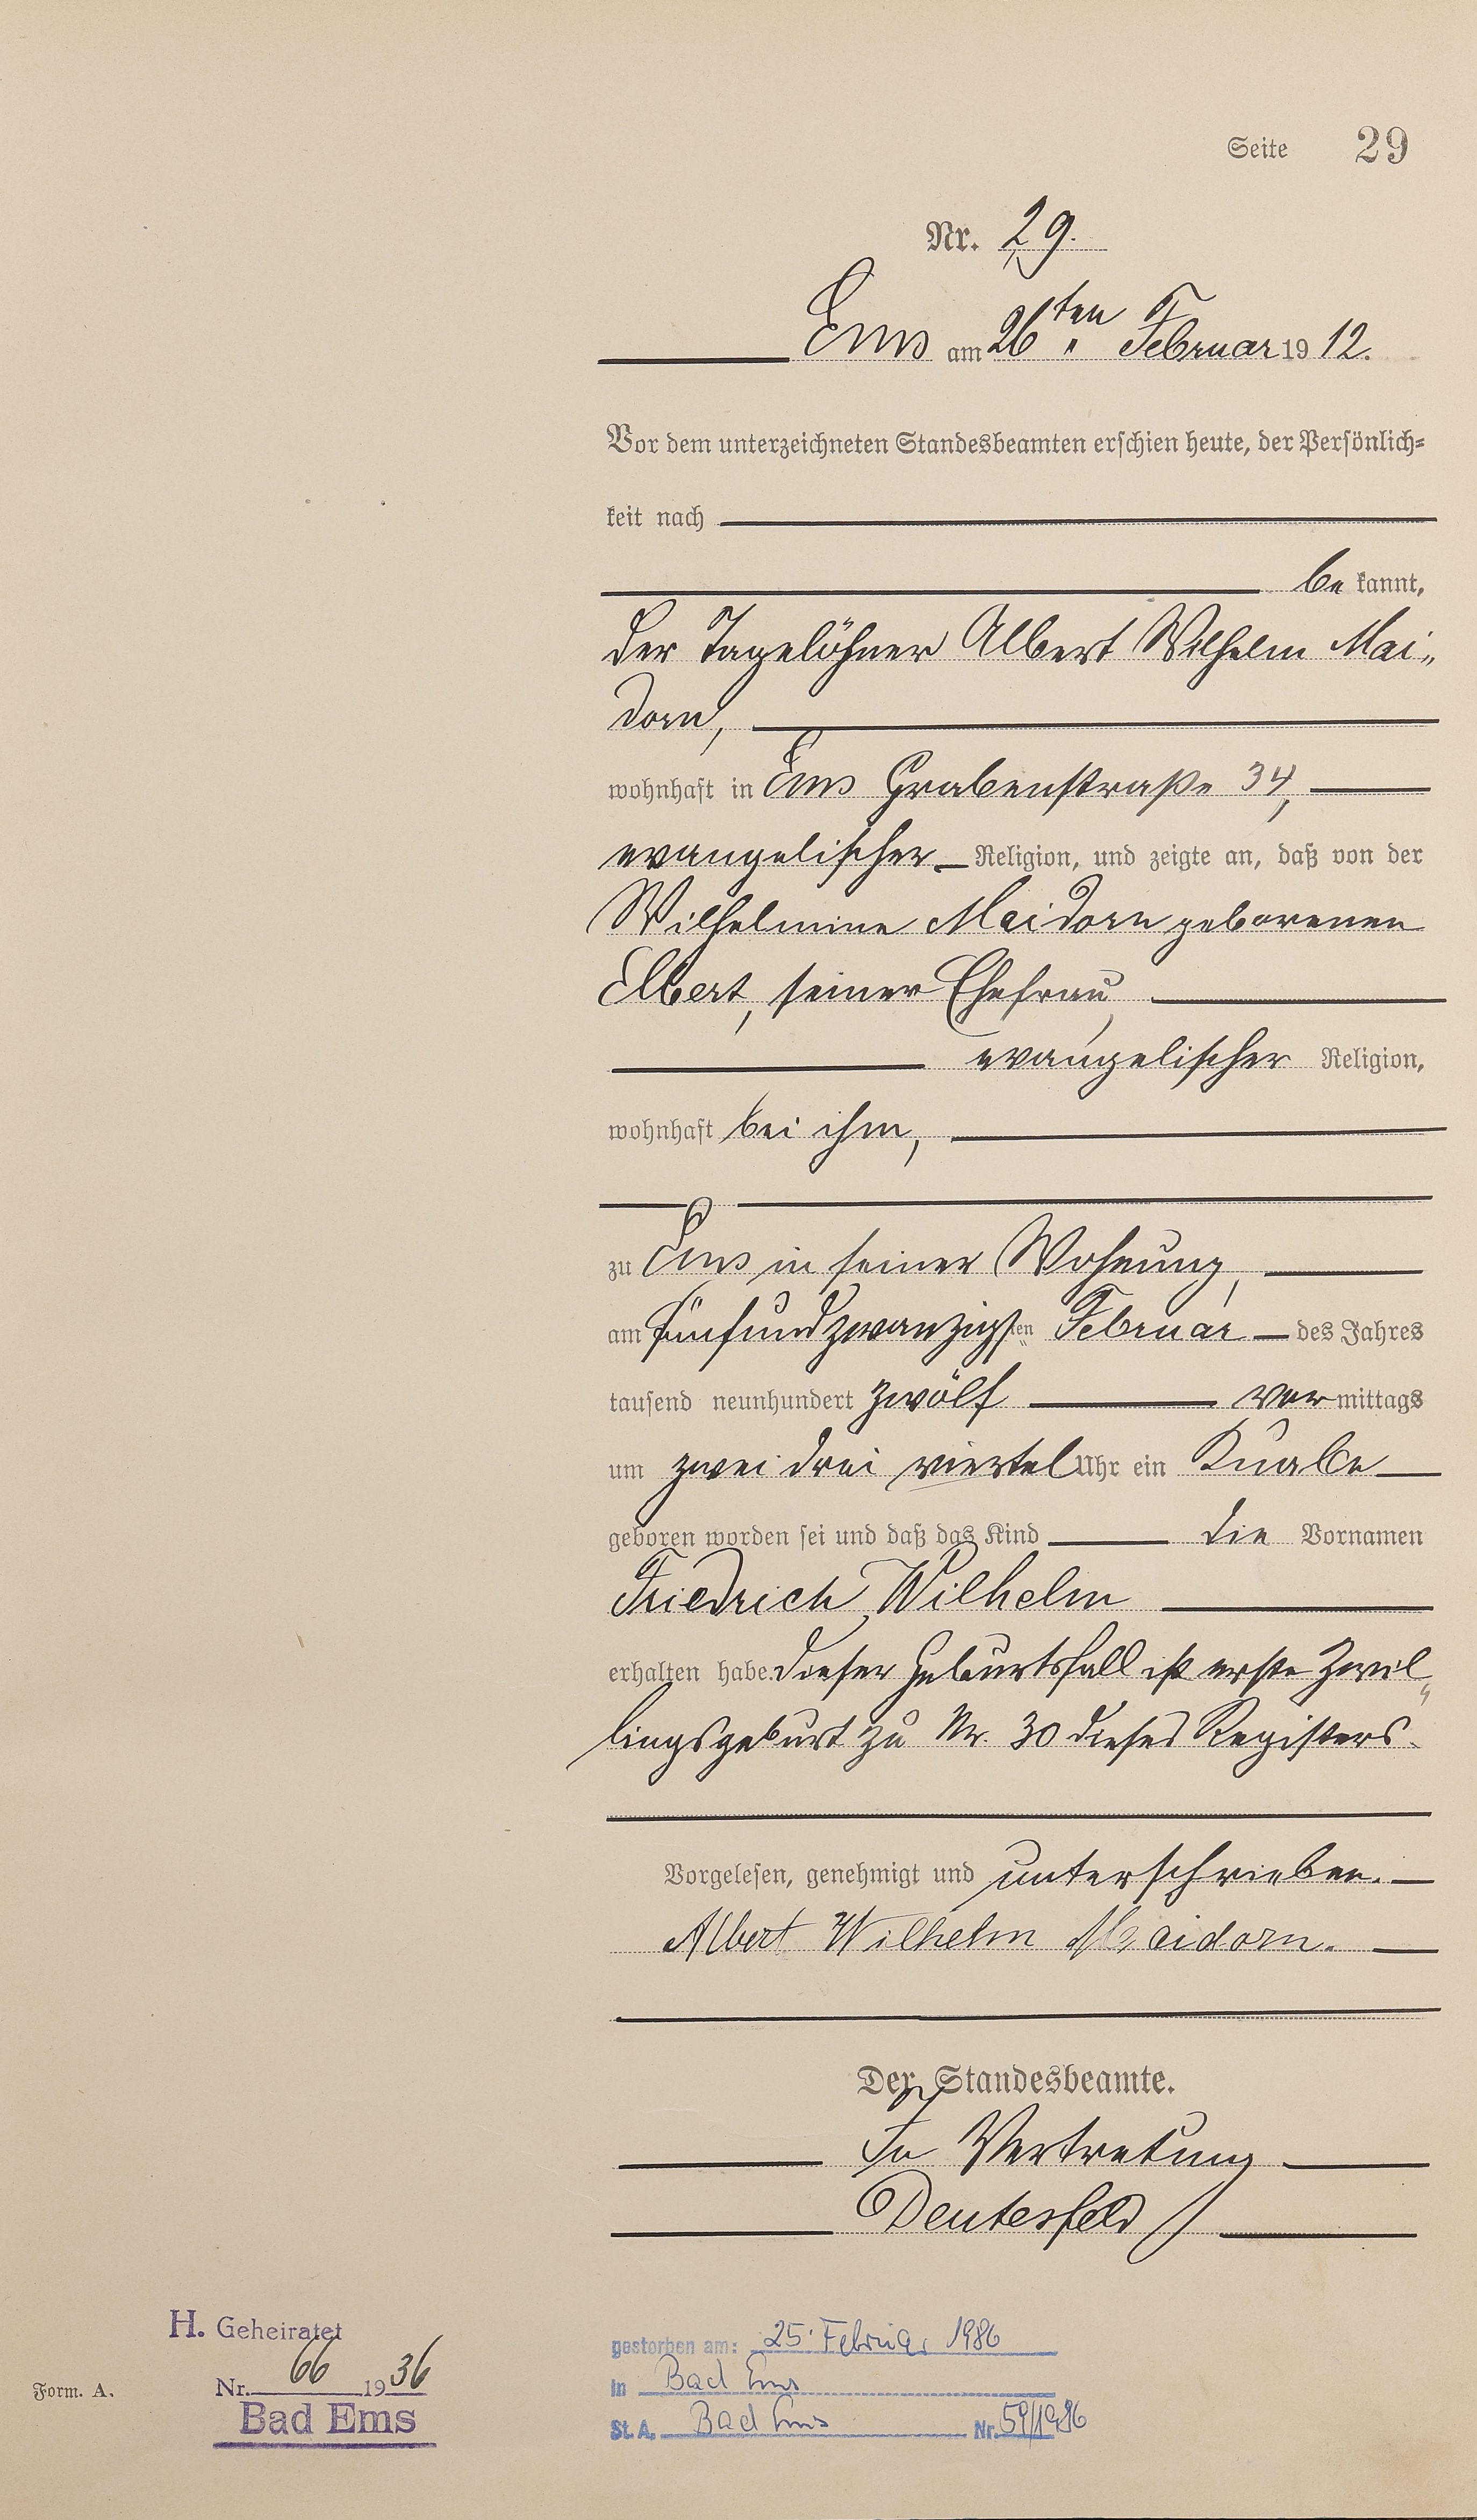 Seite 29
Nr. 29.
Ems am 26ten Februar 1912.
Vor dem unterzeichneten Standesbeamten erschien heute, der Persönlich=
keit nach
bekannt,
der Tagelöhner Albert Wilhelm Mai„
dorn,
wohnhaft in Ems Grabenstraße 34,
evangelischer Religion, und zeigte an, daß von der
Wilhelmine Maidorn geborenen
Elbert, seiner Ehefrau,
evangelischer Religion,
wohnhaft bei ihm,
zu Ems in seiner Wohnung,
am fünfundzwanzigsten Februar des Jahres
tausend neunhundert zwölf vormittags
um zwei drei viertel Uhr ein Knabe
geboren worden sei und daß das Kind die Vornamen
Friedrich Wilhelm
erhalten habe. Dieser Geburtsfall ist erste Zwil„
lingsgeburt zu Nr. 30 dieses Registers.
Vorgelesen, genehmigt und unterschrieben.
Albert Wilhelm Maidorn.
Der Standesbeamte.
In Vertretung
Deutesfeld
H. Geheiratet
Nr. 66 1936
Bad Ems
Form. A.
gestorben am: 25. Februar 1986
in Bad Ems
St. A. Bad Ems Nr. 59/1986